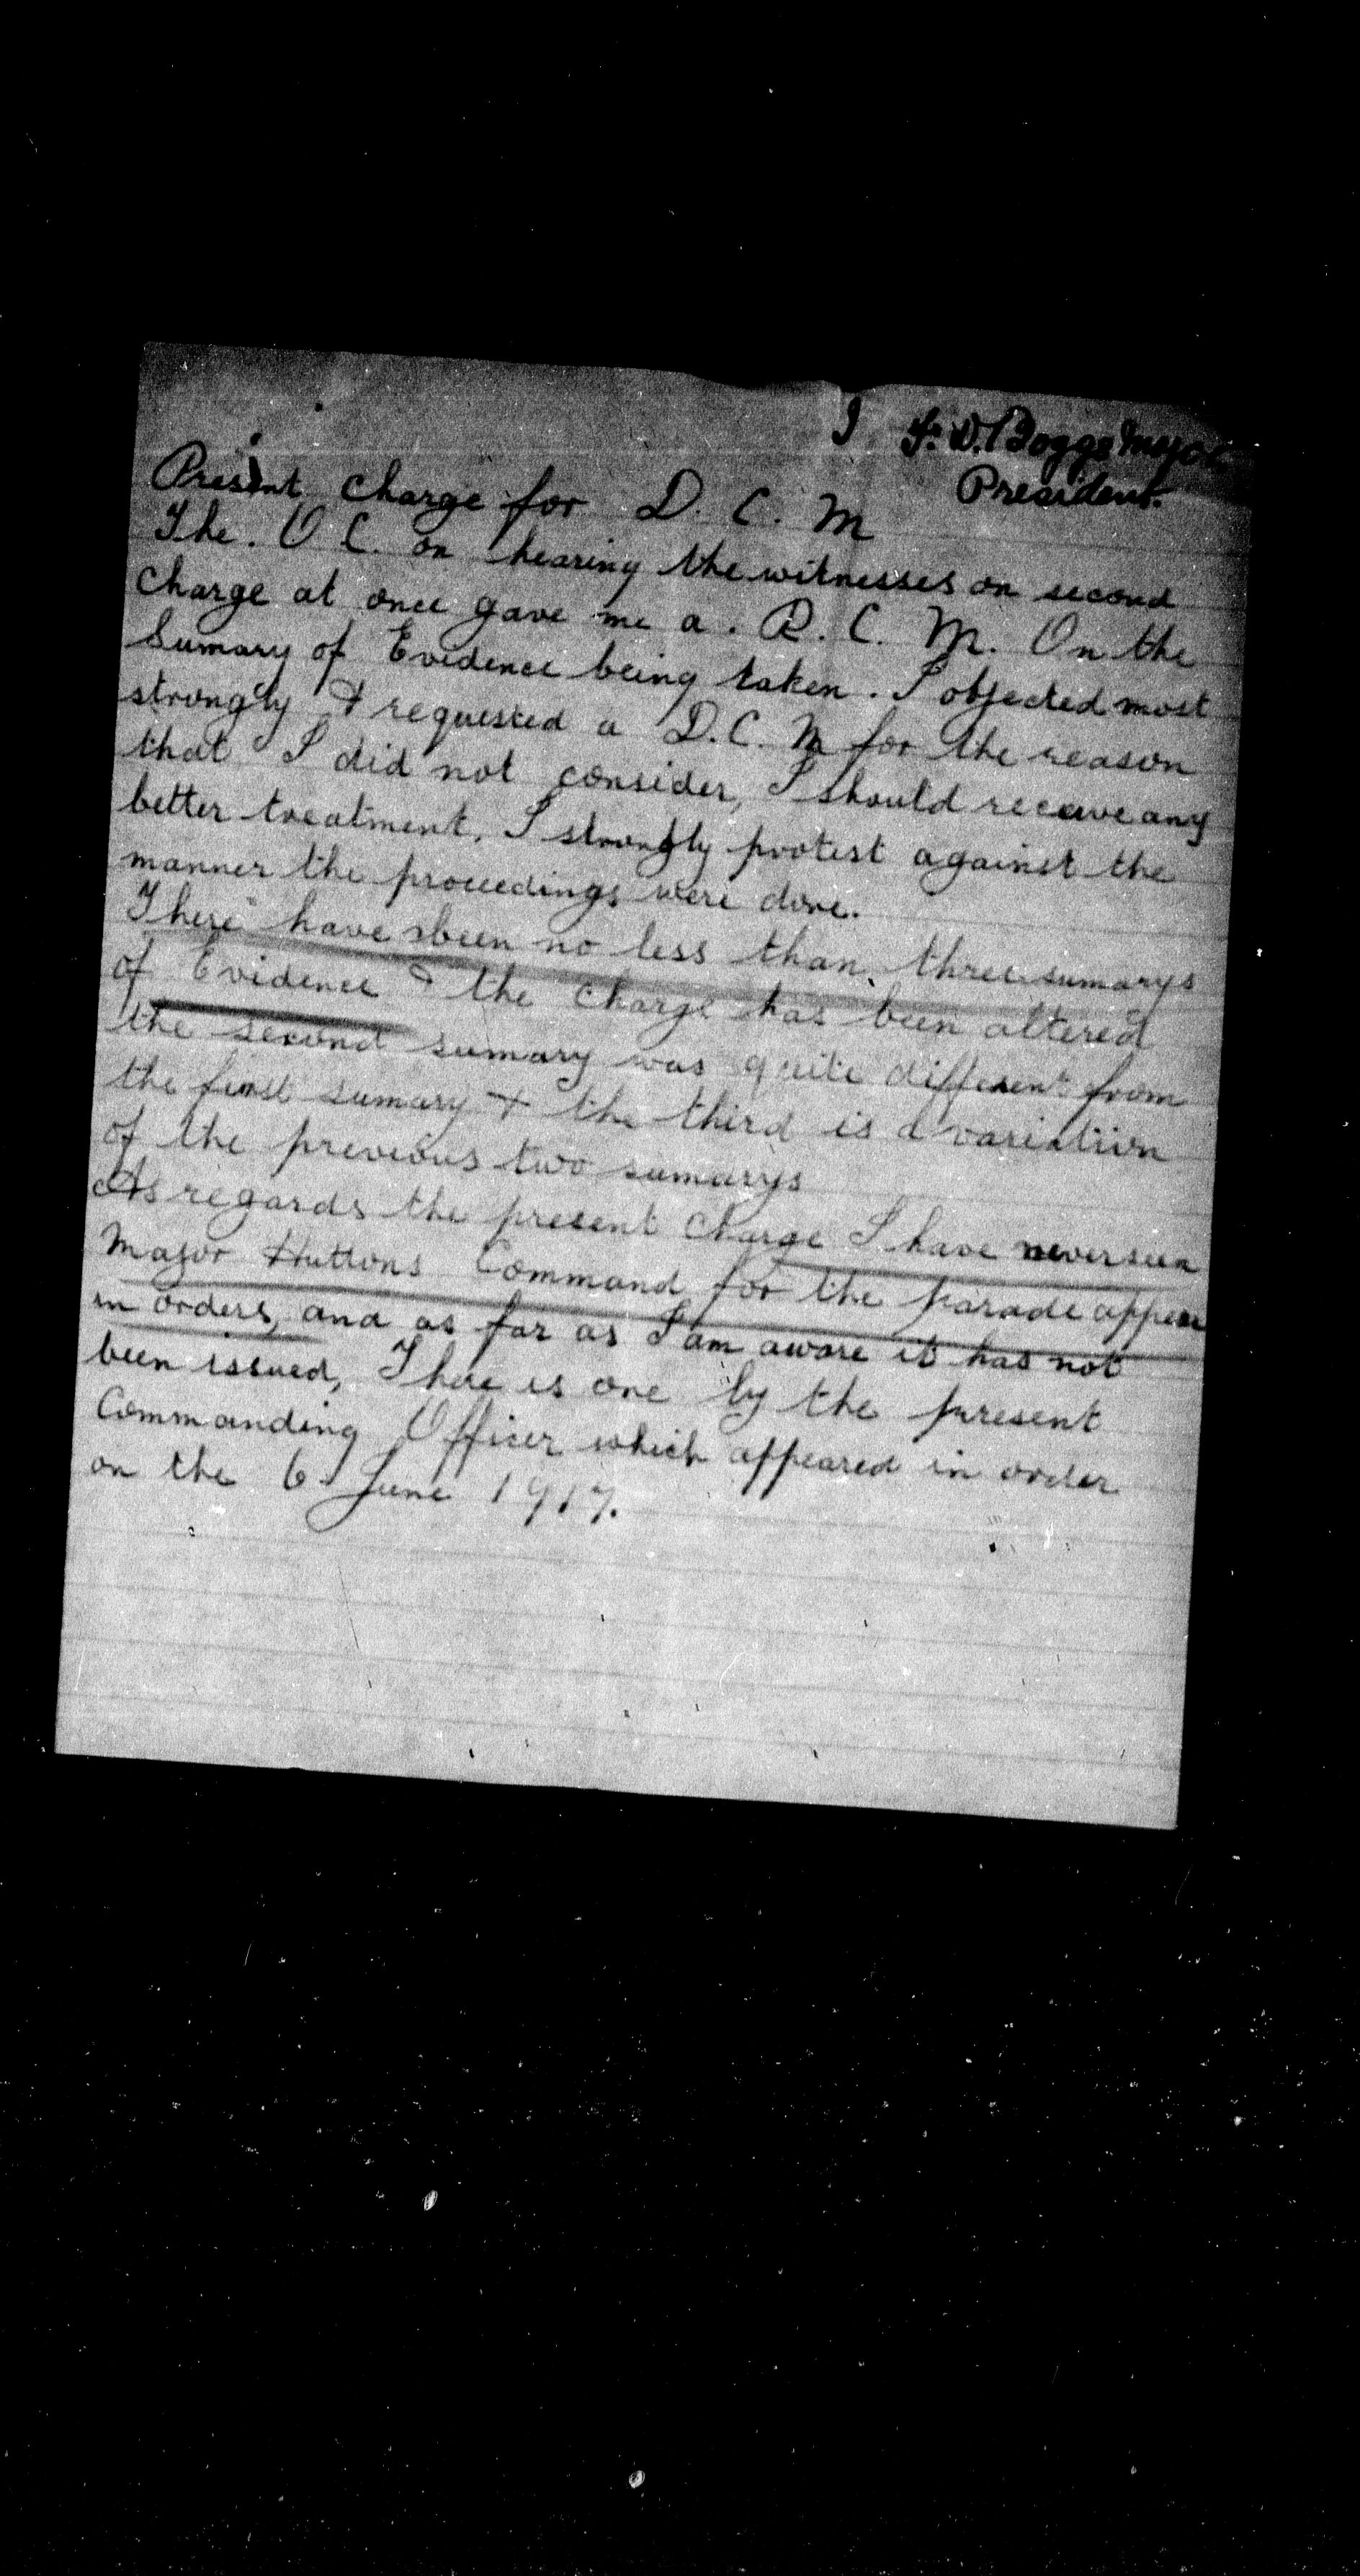 I F. W. Boggs Major
President.
Present charge for D. C. M
The. O C. on hearing the witnesses on second
charge at once gave me a. R. C. M. On the
Sumary of Evidence being taken. I objected most
strongly & requested a D. C. M for the reason
that I did not consider, I should receive any
better treatment. I strongly protest against the
manner the proceedings were done.
There have been no less than three sumarys
of Evidence & the charge has been altered
the second sumary was quite different from
the first sumary & the third is a variation
of the previous two sumarys
As regards the present charge I have never seen
Major Huttons Command for the parade appear
in orders, and as far as I am aware it has not
been issued, There is one by the present
Commanding Officer which appeared in order
on the 6 June 1917.